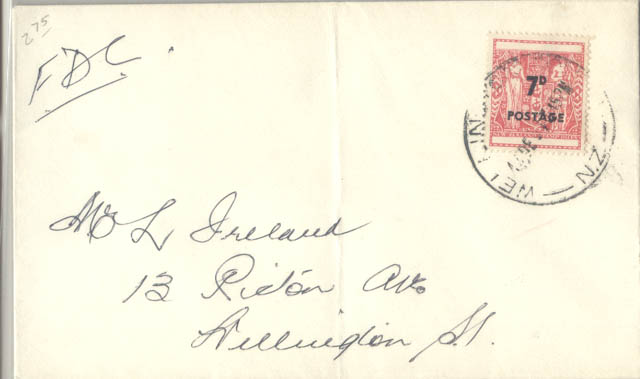 275
FDC
7D
POSTAGE
WELLIN
N.Z
Mr L Ireland
13 Ave
Wellington